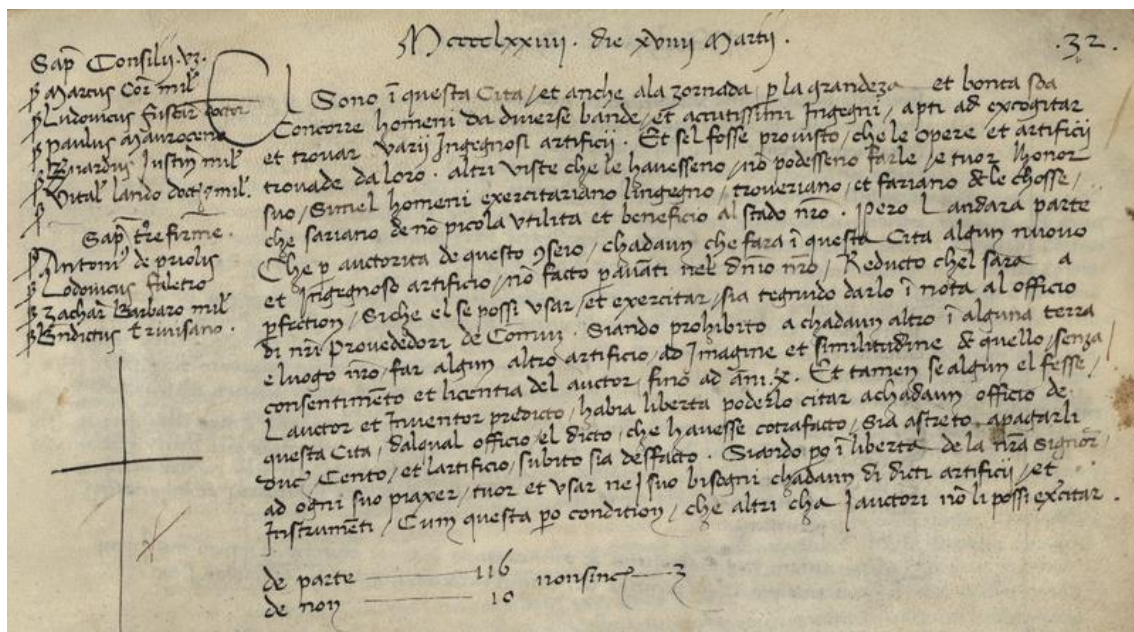 MccccLxxiiii. die xviiii Martii.
.32.
Sap Consilij. vz.
Marcus Cor mil
Ludovicus fuscar doctor
paulus Mauroceno
Bnardus Justin mil
Vital lando doct mil.
Sap tre firme.
Antoni de priolis
Lodovicus faletro
zachar Barbaro mil
Bndictus trivisano.
EL Sono i questa Cita, et anche ala zornada p la grandeza et bonta soa
Concorre homeni da diverse bande, et accutissimi Ingegni, apti ad excogitar
et trovar varij Ingegnosi artificij. Et sel fosse provisto, che le opere et artificij
trovade da loro. altri viste che le havesseno, no podesseno farle, e tuor lhonor
suo, simel homeni exercitariano lingegno, troveriano, et fariano de le chosse,
che sariano de no picola utilita et beneficio al stado nro. Pero Landara parte
Che p auctorita de questo 9seio, chadaun che fara i questa Cita algun nuovo
et Ingegnoso artificio, no facto p avati nel dnio nro, Reducto chel sara a
pfection, siche el se possi usar, et exercitar, sia tegnudo darlo i nota al officio
di nri Provededori de Comun. Siando prohibito a chadaun altro i alguna terra
e luogo nro, far algun altro artificio, ad Imagine et similitudine de quello, senza
consentimento et licentia del auctor, fino ad ani .x. Et tamen se algun el fesse,
Lauctor et Inventor predicto, habia liberta poderlo citar a chadaun officio de
questa Cita, dalqual officio el dicto, che havesse cotrafacto, sia astreto, apagarli
duc Cento, et lartificio, subito sia desfacto. Siando po i liberta de la nra Signor,
ad ogni suo piaxer, tuor et usar ne I suo bisogni chadaun di dicti artificij, et
Instrumeti, Cum questa po condition, che altri cha I auctori no li possi exercitar.
de parte 116 nonsinc 3
de non 10